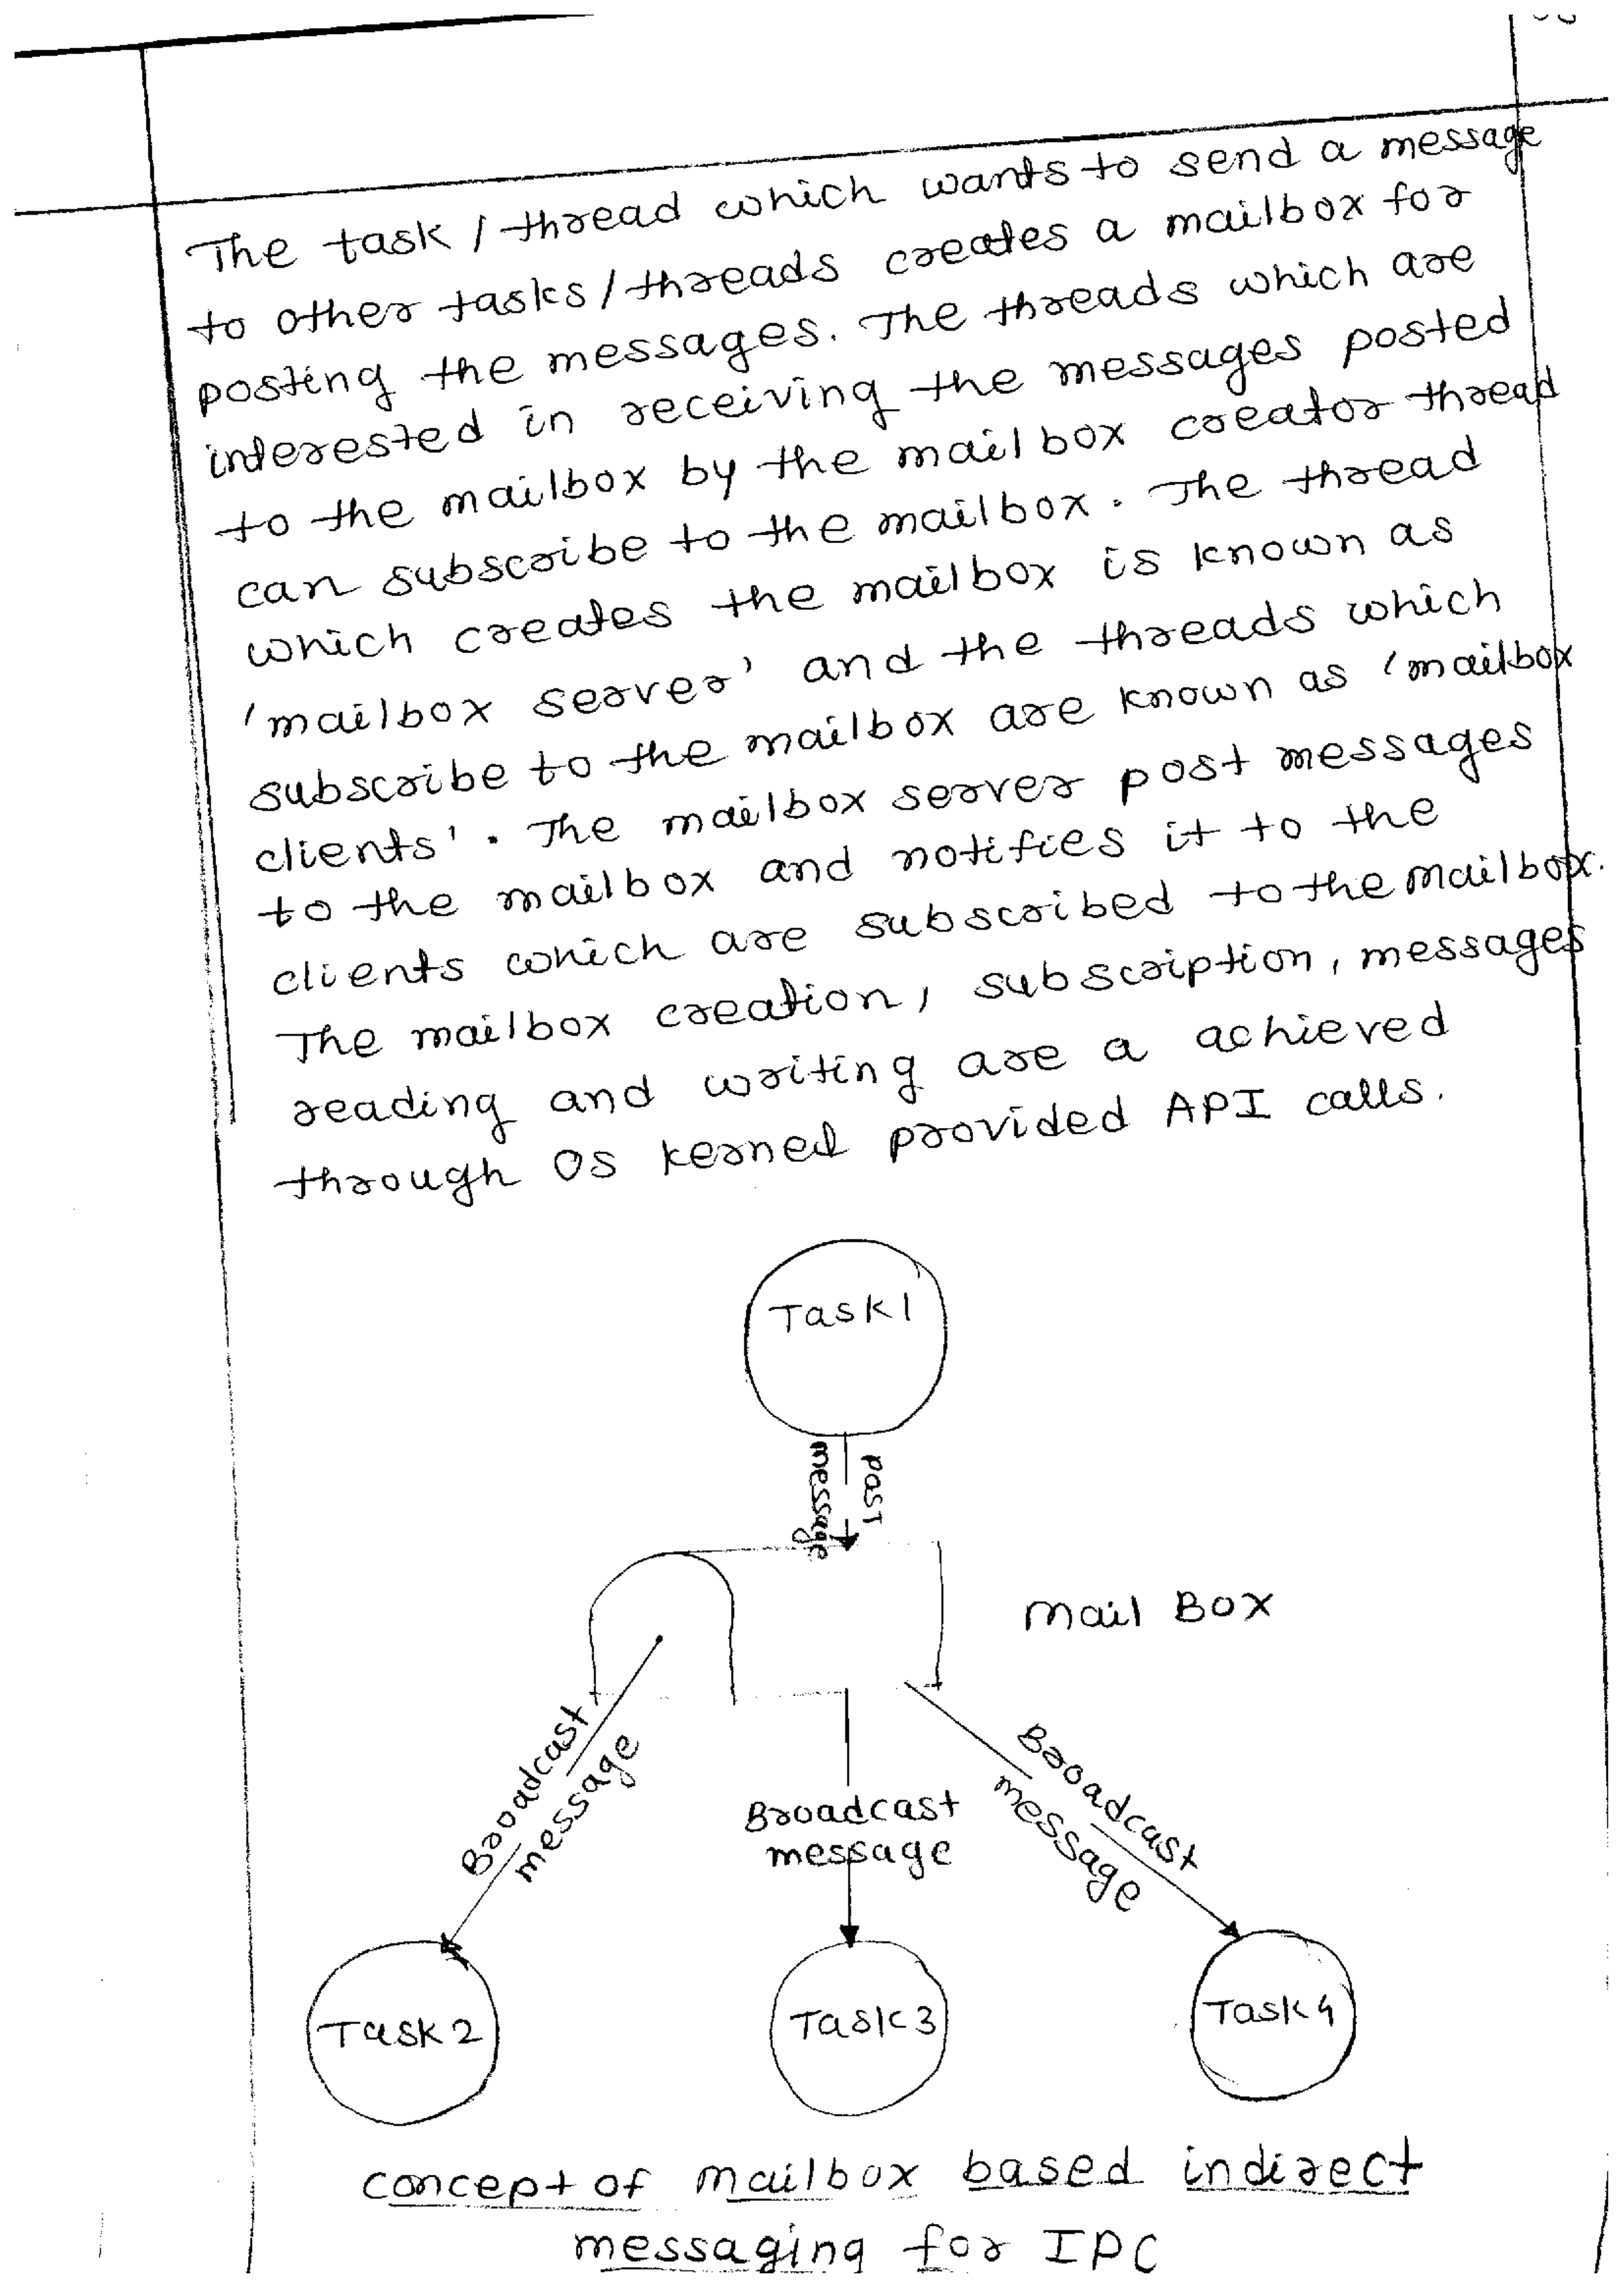 The task / thread which wants to send a message
to other tasks / threads creates a mailbox for
posting the messages. The threads which are
interested in receiving the messages posted
to the mailbox by the mail box creator thread
can subscribe to the mailbox. The thread
which creates the mailbox is known as
'mailbox server' and the threads which
subscribe to the mailbox are known as 'mailbox
clients'. The mailbox server post messages
to the mailbox and notifies it to the
clients which are subscribed to the mailbox.
The mailbox creation, subscription, messages
reading and writing are a achieved
through OS kernel provided API calls.
Task 1
past
message
mail Box
Broadcast
message
Broadcast
message
Broadcast
message
Task 2
Task 3
Task 4
concept of mailbox based indirect
messaging for IPC